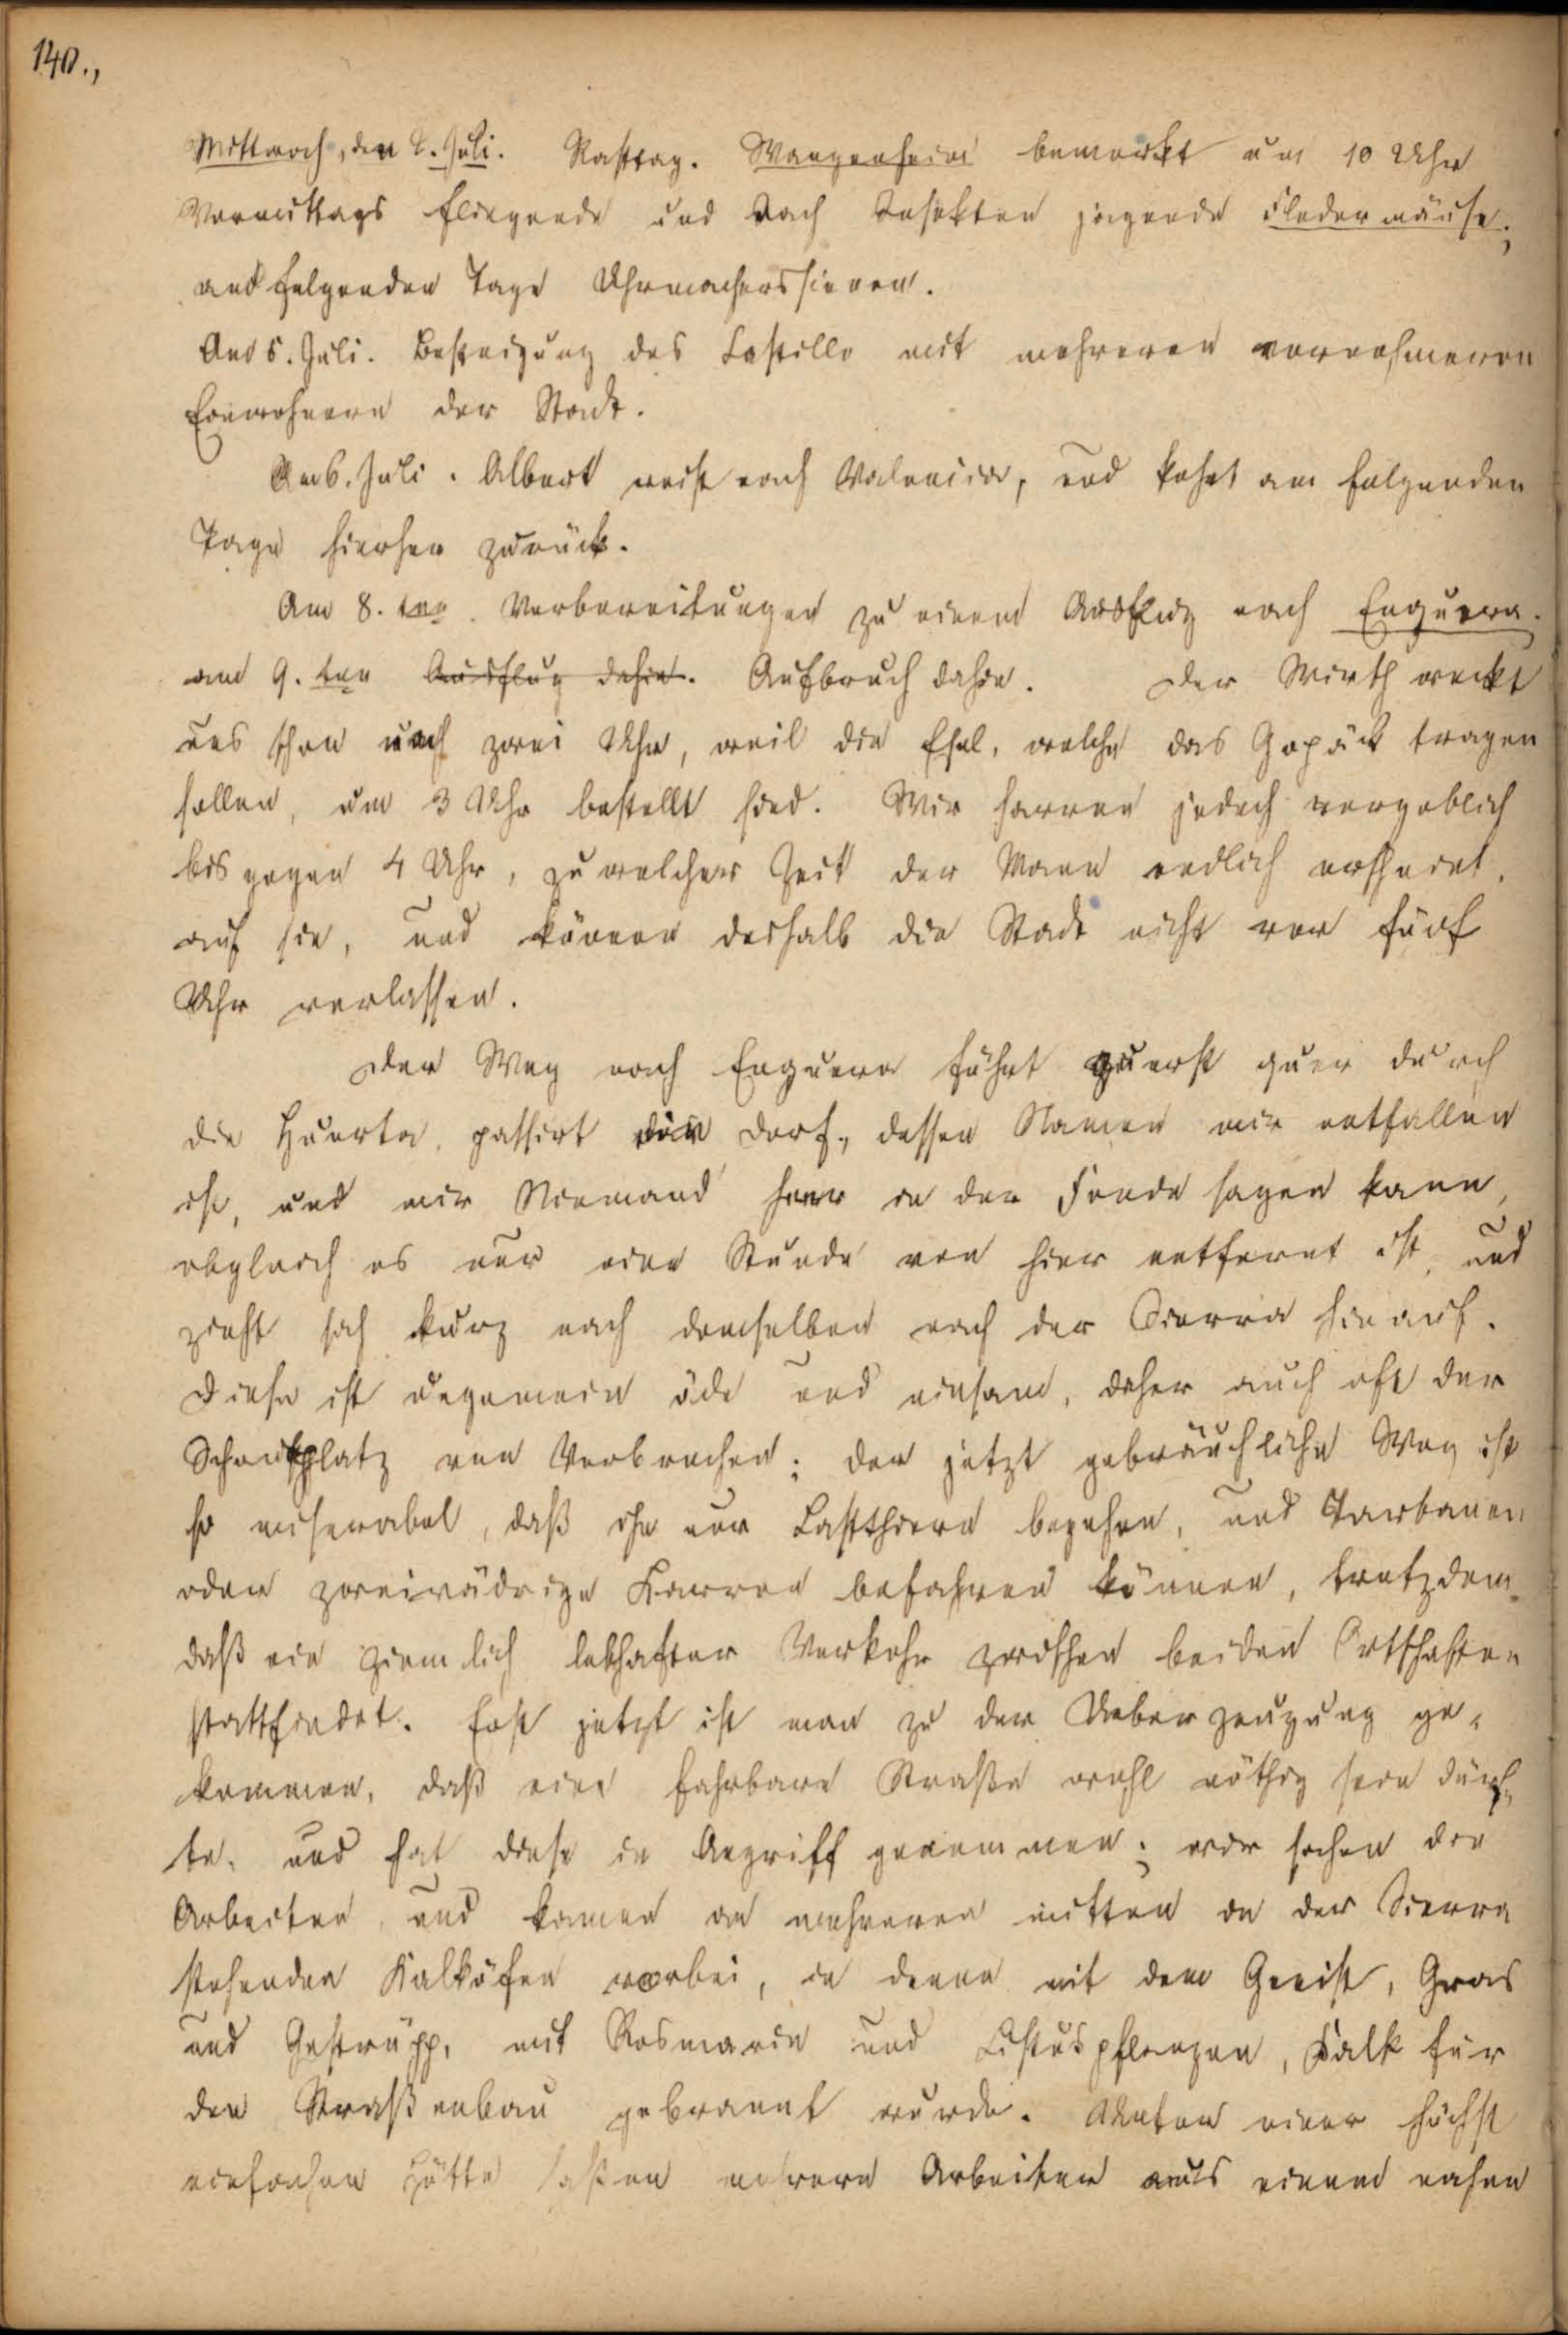 140.,
Mittwoch, den 2. Juli. Rasttag. Wangenheim bemerkt um 10 Uhr
Vormittags fliegende und nach Insekten jagende Fledermäuse;
am folgenden Tage
Am 5. Juli. Besteigung des Castillo mit mehreren vornehmeren
Einwohnern der Stadt.
Am 6. Juli. Albert reist nach Valencia, und kehrt am folgenden
Tage hierher zurück.
Am 8. ten. Vorbereitungen zu einem Ausflug nach Enguera.
am 9. ten Ausflug dahin. Aufbruch dahin. Der Wirth weckt
uns schon nach zwei Uhr, weil die Esel, welche das Gepäck tragen
sollen, um 3 Uhr bestellt sind. Wir harren jedoch vergeblich
bis gegen 4 Uhr, zu welcher Zeit der Mann endlich erscheint,
auf sie, und können deshalb die Stadt nicht vor fünf
Uhr verlassen.
Der Weg nach Enguera führt zuerst quer durch
die Huerta, passirt ein Dorf, dessen Namen mir entfallen
ist, und mir Niemand hier in der Fonda sagen kann,
obgleich es nur eine Stunde von hier entfernt ist, und
zieht sich kurz nach demselben nach der Sierra hinauf.
Diese ist ungemein öde und einsam, daher auch oft der
Schauplatz von Verbrechen; der jetzt gebräuchliche Weg ist
so miserabel, daß ihn nur Lastthiere begehen, und Tartanen
oder zweirädrige Karren befahren können, trotzdem
daß ein ziemlich lebhafter Verkehr zwischen beiden Ortschaften
stattfindet. Erst jetzt ist man zu der Ueberzeugung ge-
kommen, daß eine fahrbare Straße wohl nöthig sein dürf-
te, und hat diese in Angriff genommen; wir sahen die
Arbeiten, und kamen an mehreren mitten in der Sierra
stehenden Kalköfen vorbei, in denen mit dem Genist, Gras
und Gestrüpp, mit Rosmarin und Cistuspflanzen, Kalk für
den Straßenbau gebrannt wurde. Unter einer höchst
einfachen Hütte saßen mehrere Arbeiter aus einem nahen